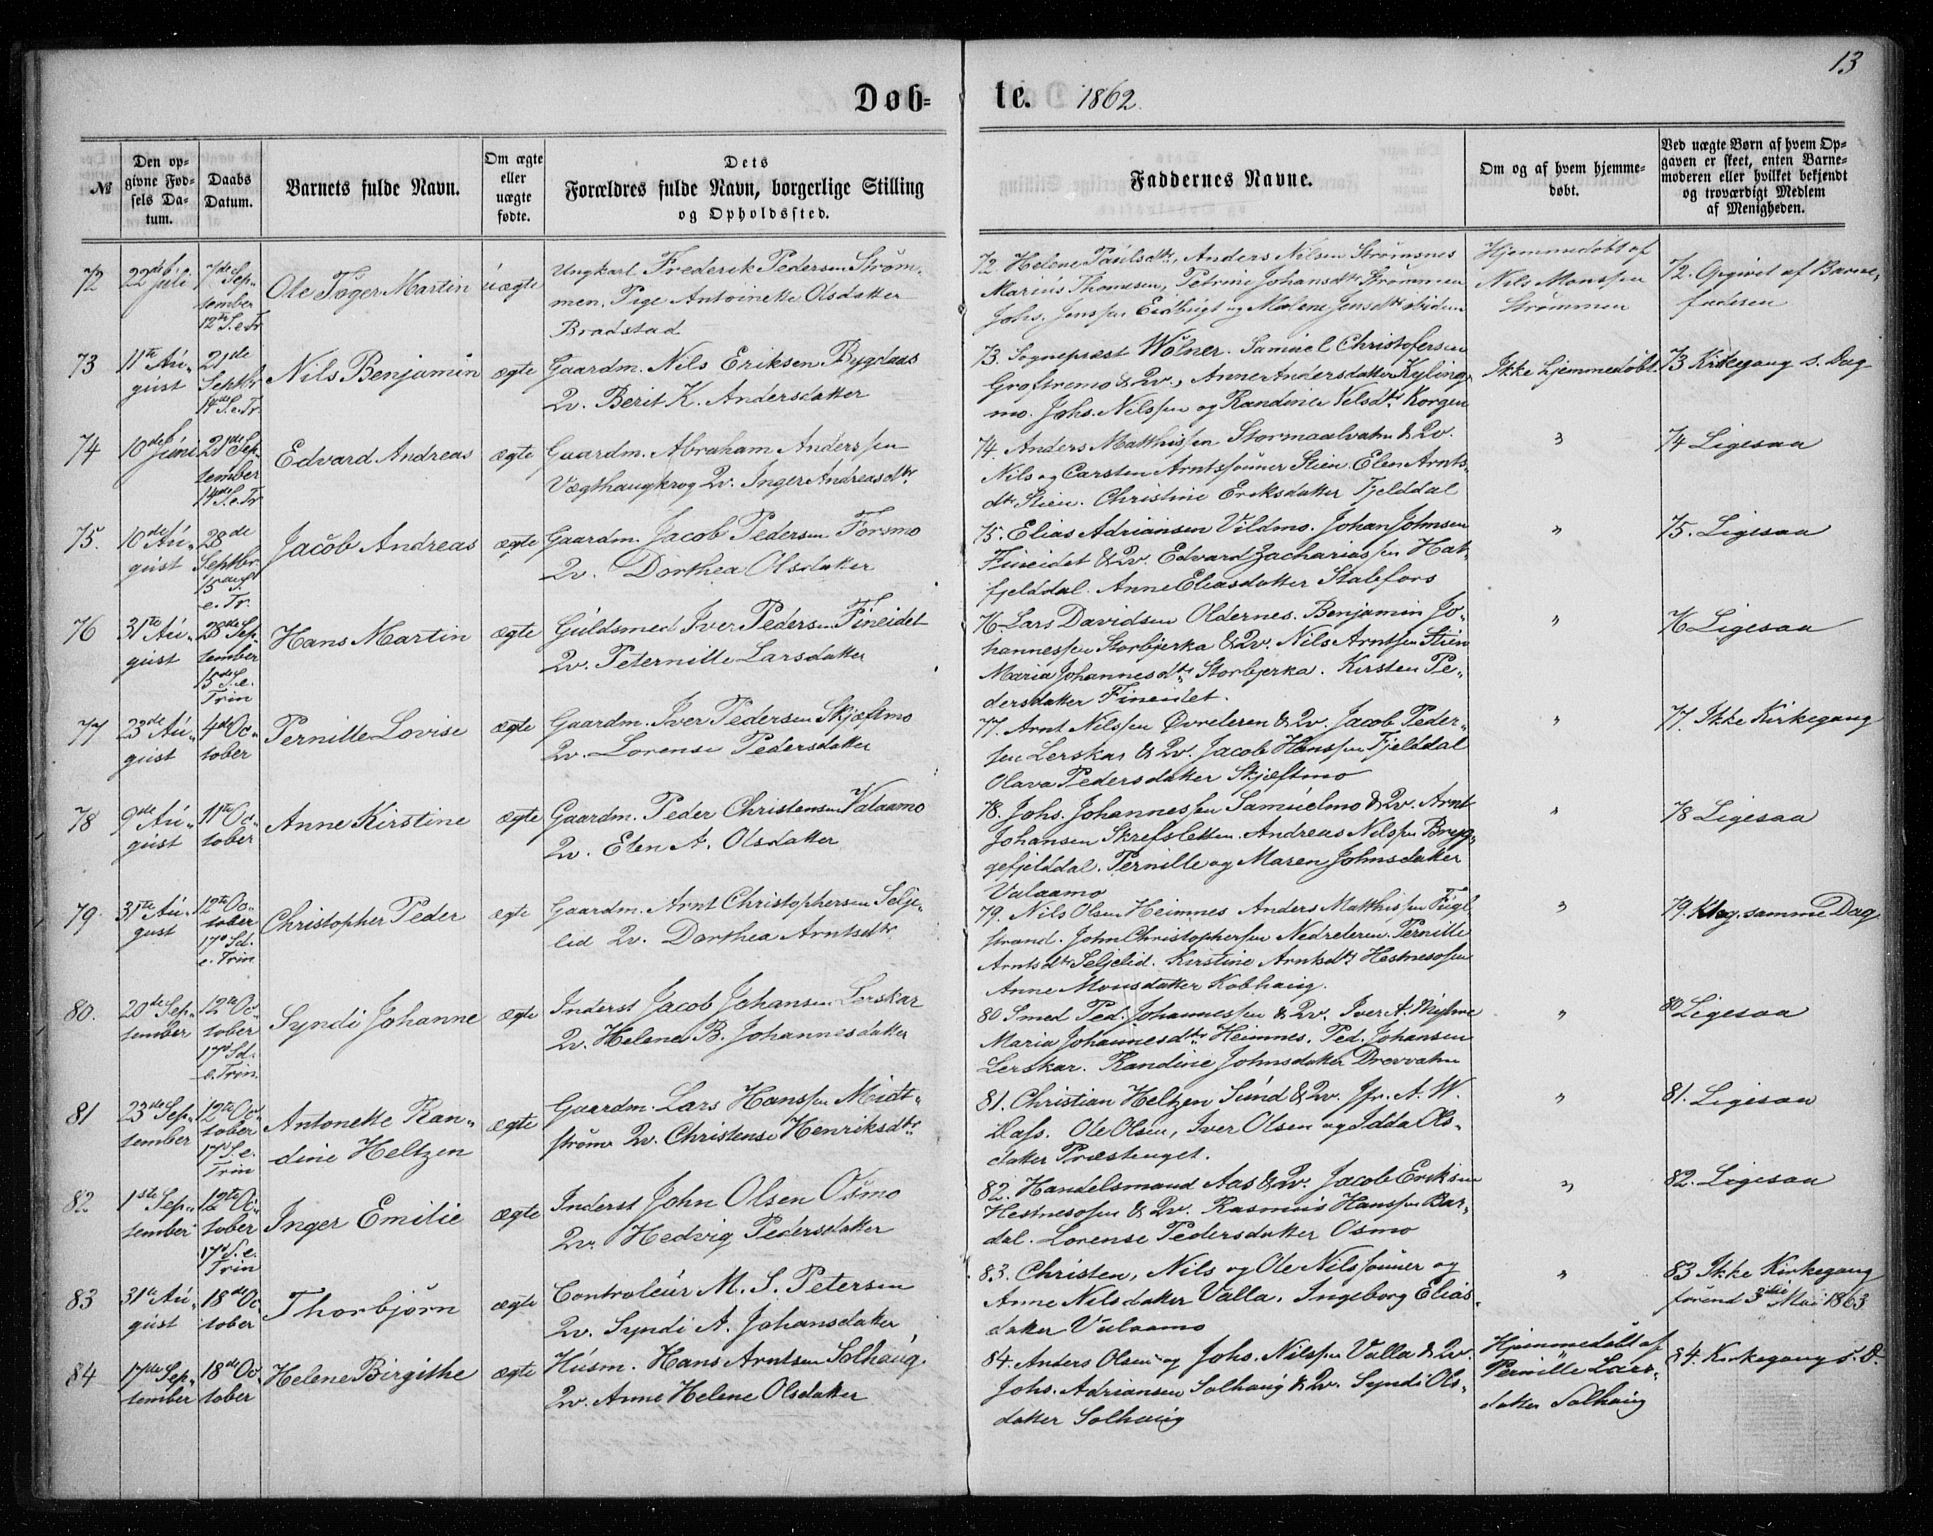 13
Døb= te. 1862.
№
Den op-
givne Fød-
sels Da-
tum.
Daabs
Datum.
Barnets fulde Navn.
Om ægte
eller
uægte
fødte.
Dets
Forældres fulde Navn, borgerlige Stilling
og Opholdssted.
Faddernes Navne.
Om og af hvem hjemme-
døbt.
Ved uægte Børn af hvem Op-
gaven er skeet, enten Barne-
moderen eller hvilket bekjendt
og troværdigt Medlem
af Menigheden.
72
22de Juli
7de Sep-
tember
12te S. e. Tr
Ole Martin
uægte
Ungkarl Frederik Pedersen Strøm-
men. Pige Antoinette Olsdatter
Bradstad
72. Helene Paulsdtr, Anders Nilsen Strømsnes
Marius Thomesen, Petrine Johansdtr Strømmen
Johs. Jenssen Eidbugt og Malene Jensdtr ibidem
Hjemmedøbt af
Nils Monssen
Strømmen
72. Opgivet af Barne-
faderen
73
11te Au-
gust
21de
Septbr
14de S. e. Tr.
Nils Benjamin
ægte
Gaardm. Nils Eriksen Bygdaas
Qv. Berit K. Andersdatter
73. Sognepræst Wolner. Samuel Christofersen
Grofstremo & Qv., Anne Andersdatter Kyling-
mo. Johs. Nilssen og Randine Nelsdtr Korgen
Ikke hjemmedøbt.
73 Kirkegang s. Dag
74
10de Juni
21de Sep-
tember
14de S. e. Tr
Edvard Andreas
ægte
Gaardm. Abraham Anderssen
Vægthaugkrog Qv. Inger Andreasdtr
74. Anders Matthissen Stormaalvatn & Qv.
Nils og Carsten Arntssønner Stien. Elen Arnts-
dtr Stien. Christine Eriksdatter Fjelddal
"
74 Ligesaa
75.
10de Au-
gust
28de
Septbr
15 S.
e. Tr.
Jacob Andreas
ægte
Gaardm. Jacob Pedersen Forsmo
Qv. Dorthea Olsdatter
75. Elias Adriansen Vildmo. Johan Johnsen
Fineidet & Qv. Edvard Zachariassen Hat-
fjelddal. Anne Eliasdatter Stabfors
"
75. Ligesaa
76
31te Au-
gust
28de Sep-
tember
15de S. e.
Trin
Hans Martin
ægte
Guldsmed Iver Pedersen Fineidet
Qv. Peternille Larsdatter
76. Lars Davidsen Oldernes. Benjamin Jo-
hannessen Storbjerka & Qv. Nils Arntssen Stien
Maria Johannesdtr Storbjerka. Kirsten Pe-
dersdatter Fineidet.
"
76 Ligesaa
77
23de Au-
gust
4de Oc-
tober
Pernille Lovise
ægte
Gaardm. Iver Pedersen Skjæftmo
Qv. Lorense Pedersdatter
77. Arnt Nilssen Øvreleren & Qv. Jacob Peder-
sen Lerskar & Qv. Jacob Hanssen Fjelddal
Olava Pedersdatter Skjæftmo
"
77. Ikke Kirkegang
78
9de Au-
gust
11te Oc-
tober
Anne Kirstine
ægte
Gaardm. Peder Christensen Valaamo
Qv. Elen A. Olsdatter
78. Johs. Johannessen Samuelmo & Qv. Arnt
Johansen Skrefsletten. Andreas Nilssen Bryg-
gefjelddal. Pernille og Maren Johnsdatter
Valaamo
"
78 Ligesaa
79.
31te Au-
gust
12te Oc-
tober
17de Sd.
e. Trin
Christopher Peder
ægte
Gaardm. Arnt Christophersen Selje-
lid Qv. Dorthea Arntsdtr
79. Nils Olsen Heimnes Anders Matthissen Fugl-
strand. John Christophersen Nedreleren. Pernille
Arntsdtr Seljelid. Kirstine Arntsdtr Hestnesosen
Anne Monsdatter Kobhaug.
"
79. Kkeg. samme Dag
80.
20de Sep-
tember
12te Oc-
tober
17de Sd.
e. Trin.
Syndi Johanne
ægte
Inderst Jacob Johansen Lerskar
Qv. Helene B. Johannesdatter
80 Smed Ped. Johannessen & Qv. Iver A.
Maria Johannesdtr Heimnes. Ped. Johansen
Lerskar. Randine Johnsdatter Drevvatn
"
80 Ligesaa
81
23de Sep-
tember
12te Oc-
tober
17de S. e.
Trin
Antonette Ran-
dine Heltzen
ægte
Gaardm. Lars Hanssen Midt-
strøm Qv. Christense Henriksdtr
81. Christian Heltzen Sund & Qv. Jfr. A. W.
Dass. Ole Olsen, Iver Olsen og Idda Ols-
datter Præstenget.
"
81. Ligesaa
82
1ste Sep-
tember
12te Oc-
tober
17de S. e.
Trin
Inger Emilie
ægte
Inderst John Olsen Osmo
Qv. Hedvig Pedersdatter
82. Handelsmand Aas & Qv. Jacob Eriksen
Hestnesosen & Qv. Rasmus Hanssen Bar-
dal. Lorense Pedersdatter Osmo
"
82. Ligesaa
83
31te Au-
gust
18de Oc
tober
Thorbjørn
ægte
Controleur M. S. Petersen
Qv. Syndi A. Johansdatter
83. Christen, Nils og Ole Nilssønner og
Anne Nilsdatter Valla. Ingeborg Elias-
datter Valaamo
"
83 Ikke Kirkegang
førend 3die Mai 1863
84
17de Sep-
tember
18de Oc
tober
Helene Birgithe
ægte
Husm. Hans Arntsen Solhaug.
Qv. Anne Helene Olsdatter
84. Anders Olsen og Johs. Nilssen Valla & Qv.
Johs. Adriansen Solhaug & Qv. Syndi Ols-
datter Solhaug
Hjemmedøbt af
Pernille Lars-
datter Solhaug
84. Kirkegang s. D.